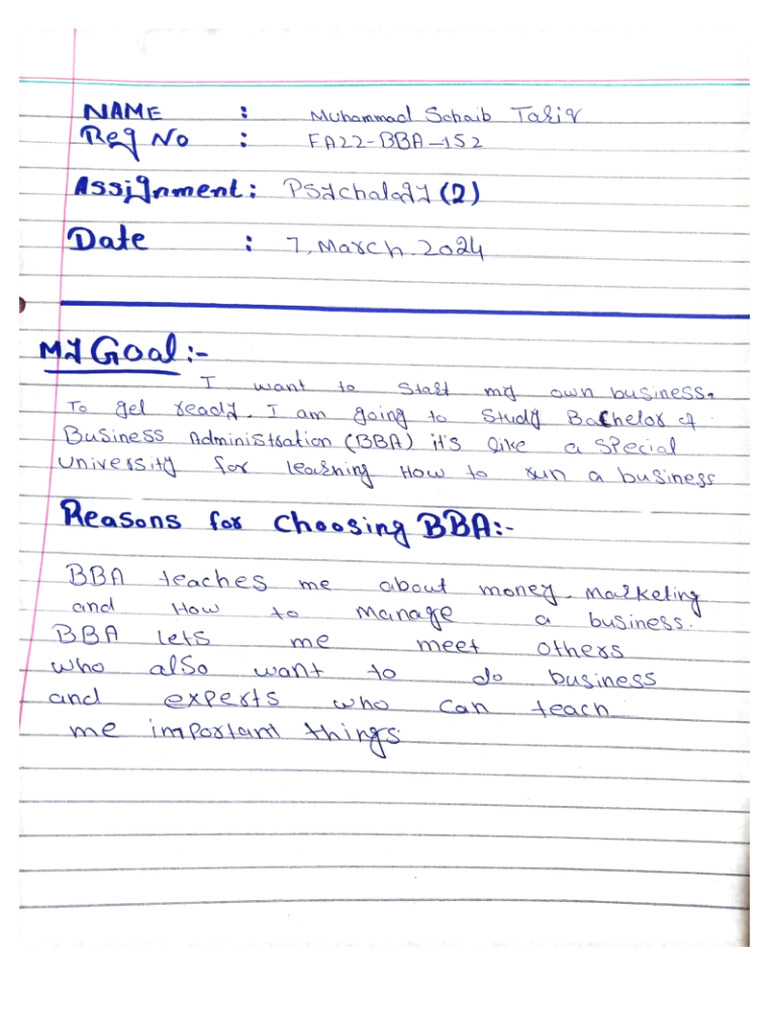 NAME : Muhammad Sohaib Tariq
Reg No : FA22-BBA-152
Assignment: Psychology (2)
Date : 7, March 2024
My Goal:-
I want to start my own business.
To get ready, I am going to study Bachelor of
Business Administration (BBA) it's like a special
University for learning How to run a business
Reasons for choosing BBA:-
BBA teaches me about money, marketing
and How to manage a business.
BBA lets me meet others
who also want to do business
and experts who can teach
me important things.